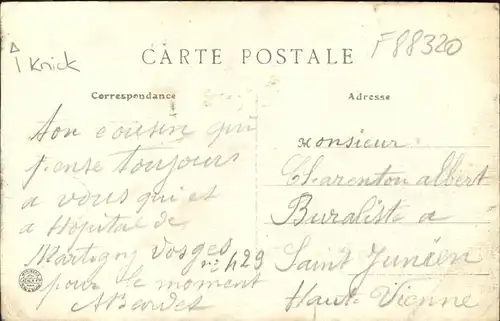 1 Knick
F88320
CARTE POSTALE
Correspondance
Adresse
ton cousin qui
pense toujours
a vous qui et
a Hôpital de
Martigny Vosges
n: 429
pour le moment
ABardet
Monsieur
Charenton albert
Buraliste a
Saint Junien
Haute Vienne